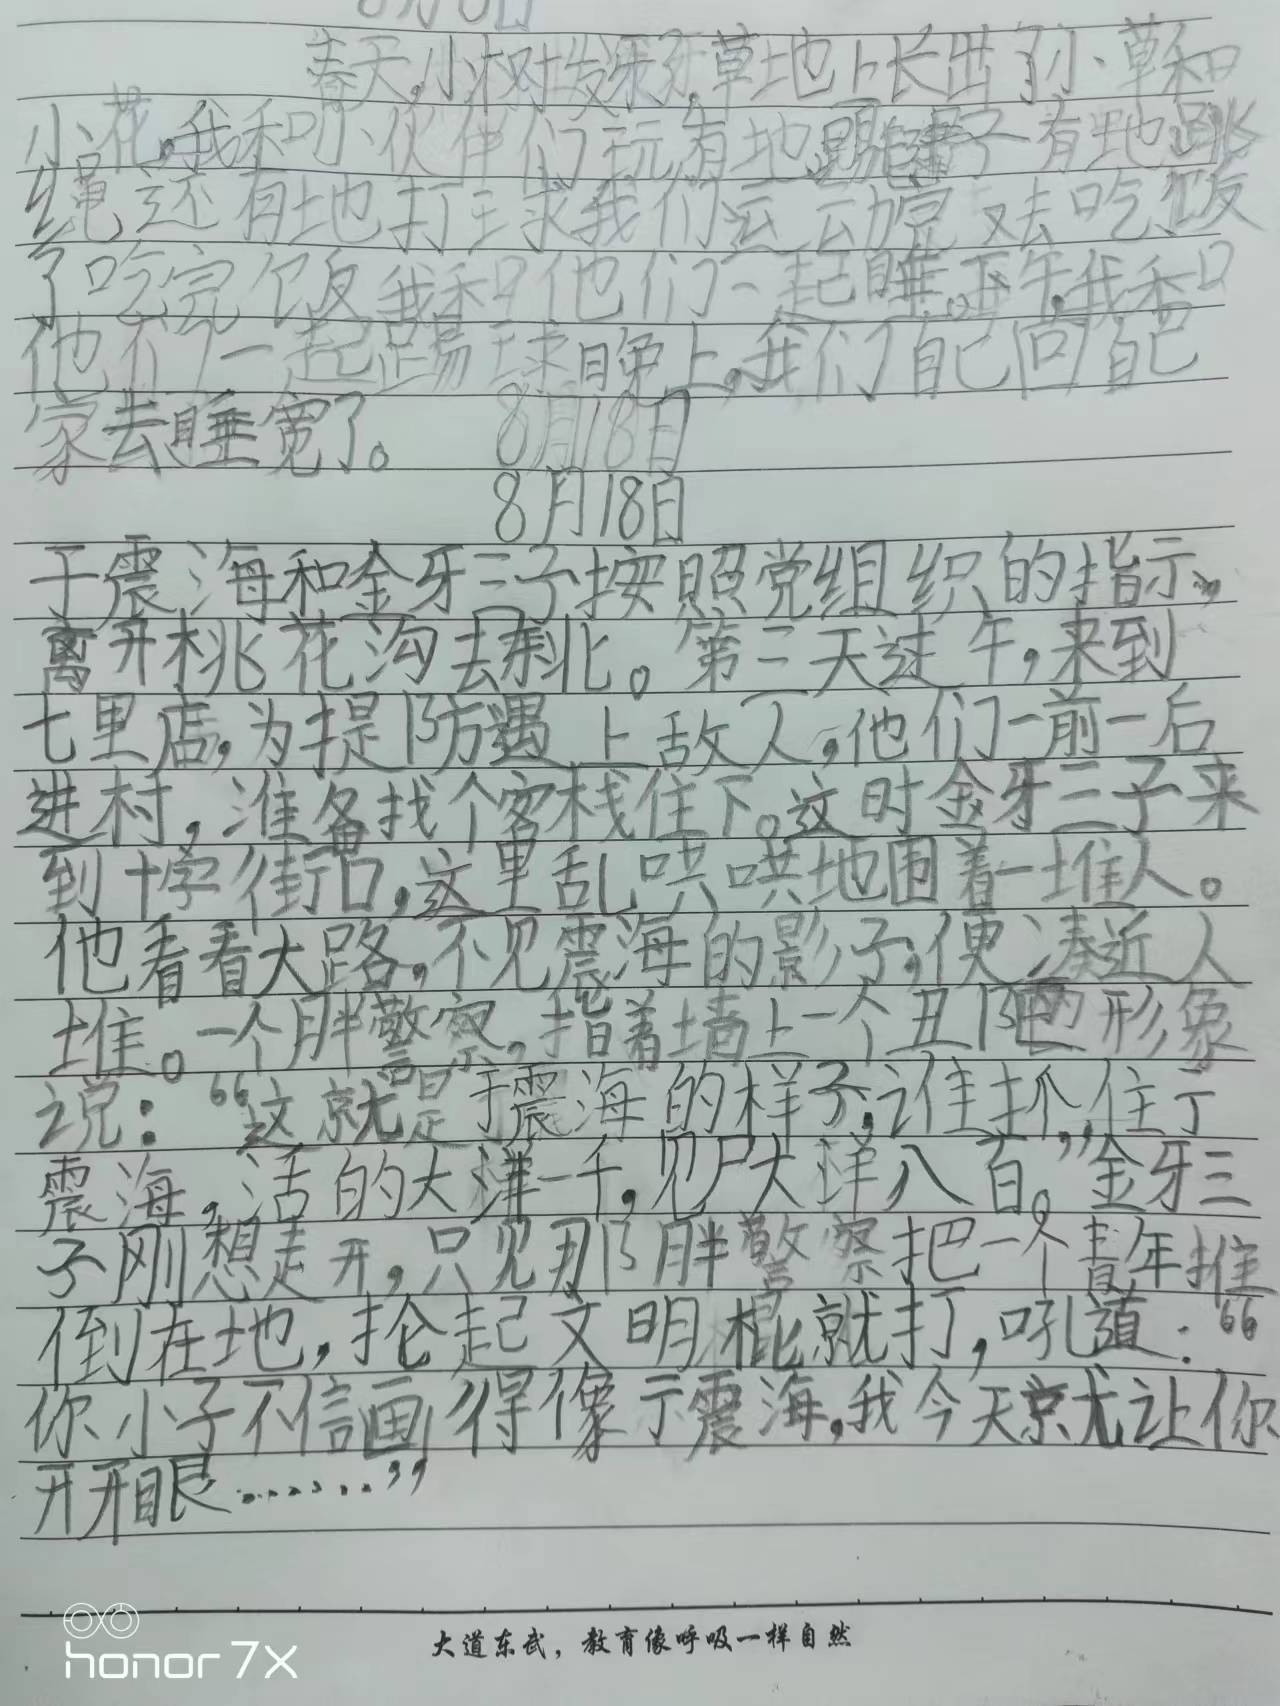 春天,小树发牙,草地上长出了小草和
小花,我和小伙伴们玩有地踢毽子有地跳
绳还有地打球我们运动完又去吃饭
了吃完饭我和他们一起睡。下午,我和
他们一起踢球晚上,我们自己回自己
家去睡宽了。 8月18日
8月18日
于震海和金牙三子按照党组织的指示,
离开桃花沟去东北。第三天过午,来到
七里店,为提防遇上敌人,他们一前一后
进村,准备找个客栈住下。这时金牙三子来
到十字街口,这里乱哄哄地围着一堆人。
他看看大路,不见震海的影子,便凑近人
堆。一个胖警察,指着墙上一个丑陋的形象
说:“这就是于震海的样子,谁抓住于
震海,活的大洋一千,见尸大洋八百。”金牙三
子刚想走开,只见那胖警察把一个青年推
倒在地,抡起文明棍就打,吼道:“
你小子不信画得像于震海,我今天就让你
开开眼……”
大道东武,教育像呼吸一样自然
honor 7X